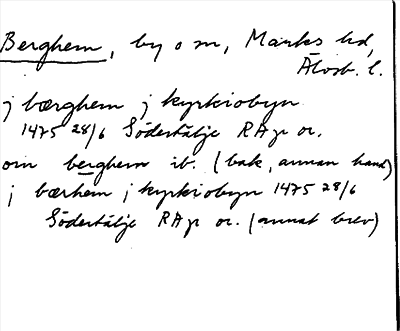 Berghem, by o sn, Marks hd,
Älvsb. l.
j bærghem j kyrkiobyn
1475 28/6 Södertälje RAp or.
om berghem ib. (bak, annan hand)
j bærhem j kyrkiobyn 1475 28/6
Södertälje RAp or. (annat brev)